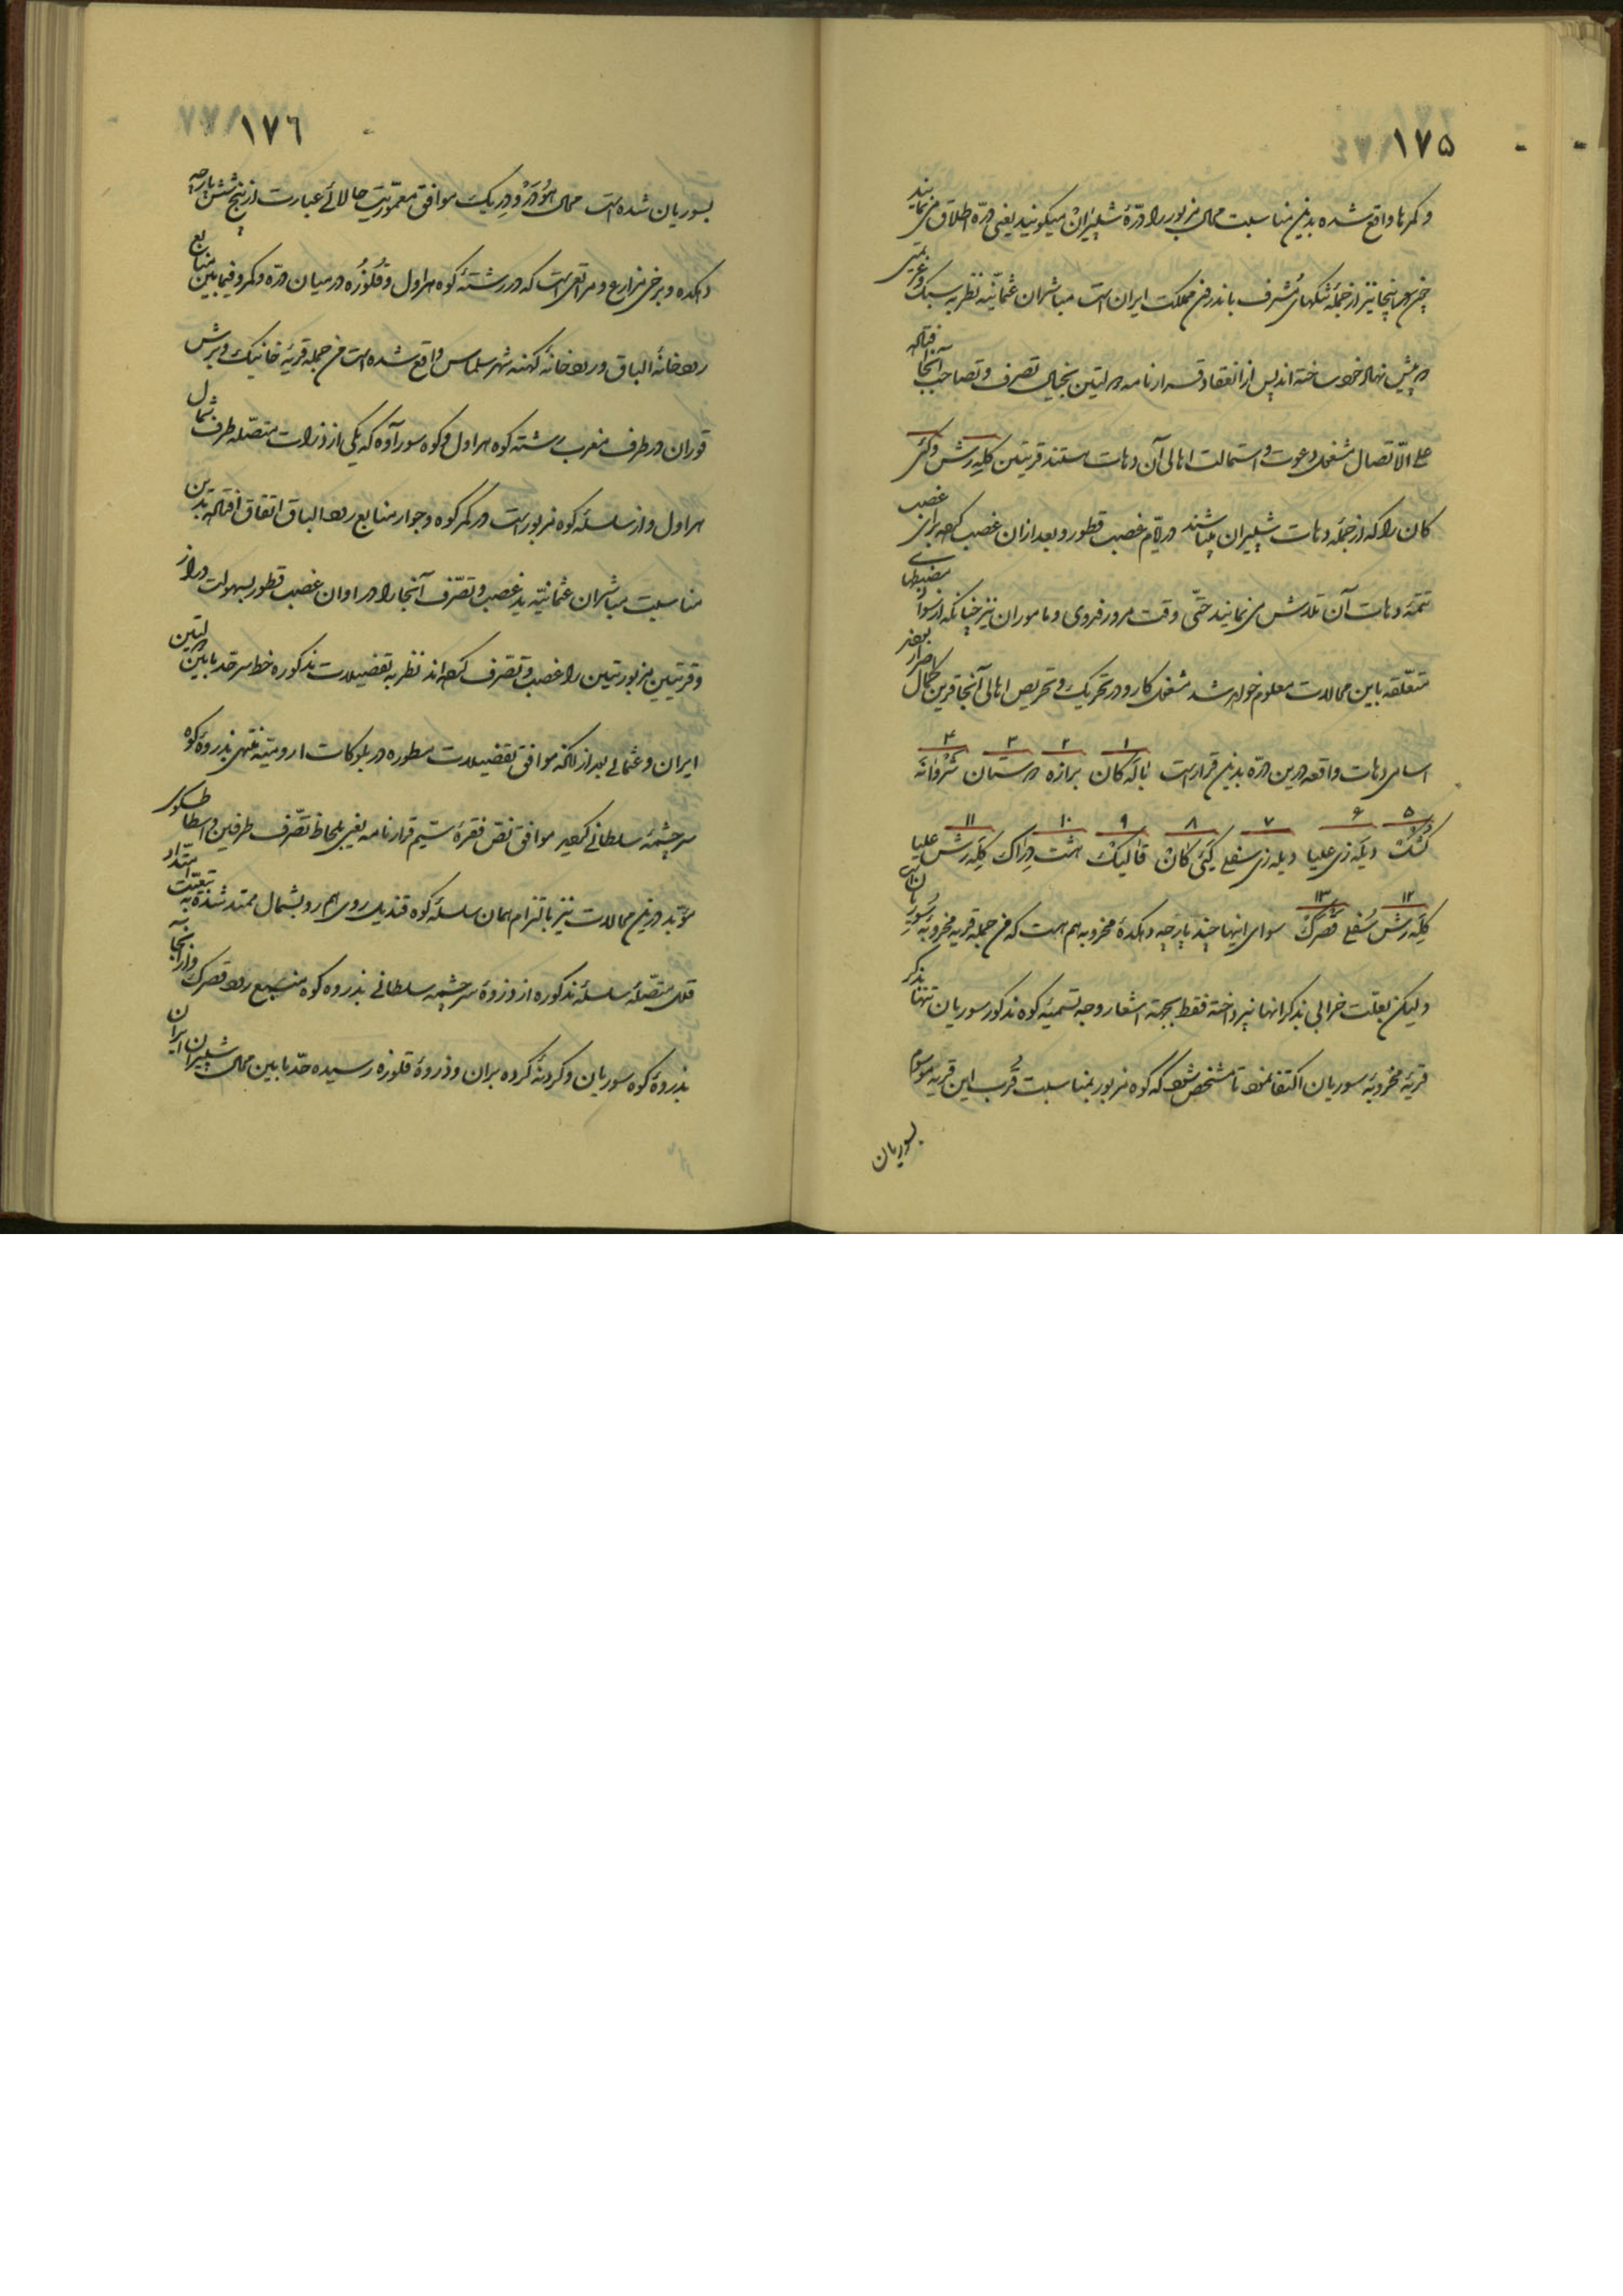 ١٧٥
و کمرها واقع شده بدین مناسبت محال مزبور را درّهٔ شپیران میگویند یعنی درّه اطلاق می نمایند
چون اینجا نیز از جملهٔ تنگهای مُشرف باندرون مملکت ایران است مباشران عثمانیّه نظر به سبک و عزیمتی
که در پیش نهاد خود ساخته اند پس از انعقاد قرارنامه دولتین بخیال تصرف و تصاحب آنجا افتاده
علی الاتّصال مشغول دعوت و استمالت اهالی آن دهات هستند قریتین کلِه رَش و کَنی
کان را که از جملهٔ دهات شپیران میباشند در ایّام غصب قطور و بعد از آن غصب کرده برای غصب
تتمّه دهات آن تلاش می نمایند حتّی وقت مرور فدوی و ماموران نیز چنانکه از سواد مضبطهای
متعلّقه باین محالات معلوم خواهد شد مشغول کار و در تحریک و تحریص اهالی آنجا قرین کمال اصرار بودند
١ ٢ ٣ ٤
اسامی دهات واقعه درین درّه بدین قرار است بالَه کان برازه درستان شَرْوانَه
٥ ٦ ٧ ٨ ٩ ١٠ ١١
کُشک دیلَه زی علیا دیله زی سفلی کَنی کان قالیک هشت دِراک کِلِه رَش علیا
١٢ ١٣
کِلَه رَش سُفلی قَصرِک سوای اینها چند پارچه دهکدهٔ مخروبه هم هست که من جمله قریه مخروبهٔ سوریان است
ولیکن بعلّت خرابی بذکر آنها نپرداخته فقط بجهة اشعار وجه تسمیهٔ کوه مذکور سوریان تنها بذکر
قریهٔ مخروبهٔ سوریان اکتفا نمود تا مشخّص شود که کوه مزبور بمناسبت قُرب این قریه موسوم
بسوریان
١٧٦
بسوریان شده است محال هُودَر و دِریک موافق معموریّت حالائی عبارت از پنج شش پارچه
دهکده و برخی مزارع و مراتعی است که در رشتهٔ کوه هراول و قُلوزُه در میان درّه و کمر و فیمابین منابع
رودخانهٔ الباق و رودخانهٔ کهنه شهر سلماس واقع شده است من جمله قریهٔ خانیک و برش
قوران در طرف مغرب رشته کوه هراول و کوه سورآوه که یکی از ذروات متصّله طرف شمال
هراول و از سلسلهٔ کوه مزبور است در کمر کوه و جوار منابع رود الباق اتفاق افتاده بدین
مناسبت مباشران عثمانیّه ید غصب و تصّرف آنجا را در اوان غصب قطور بسهولت دراز
و قریتین مزبورتین را غصب و تصّرف کرده اند نظر به تفضیلات مذکوره خط سرحد مابین دولتین
ایران و عثمانی بعد از آنکه موافق تفضیلات مسطوره در بلوکات ارومیّه منتهی بذروهٔ کوه
سرچشمهٔ سلطانی گردید موافق نصّ فقرهٔ سیّم قرارنامه یعنی بلحاظ تصّرف طرفین و استاطسکوی
مؤبّد درین محالات نیز با التزام همان سلسلهٔ کوه قندیل روی هم رو بشمال ممتد شده به تبعیّت امتداد
قلل متصّلهٔ سلسلهٔ مذکوره از ذروهٔ سرچشمه سلطانی بذروه کوه منبع رود قصرک و از آنجا به
بذروهٔ کوه سوریان و گردنهٔ کرده بران و ذروهٔ قلوزه رسیده حدّ مابین محال شپیران ایران